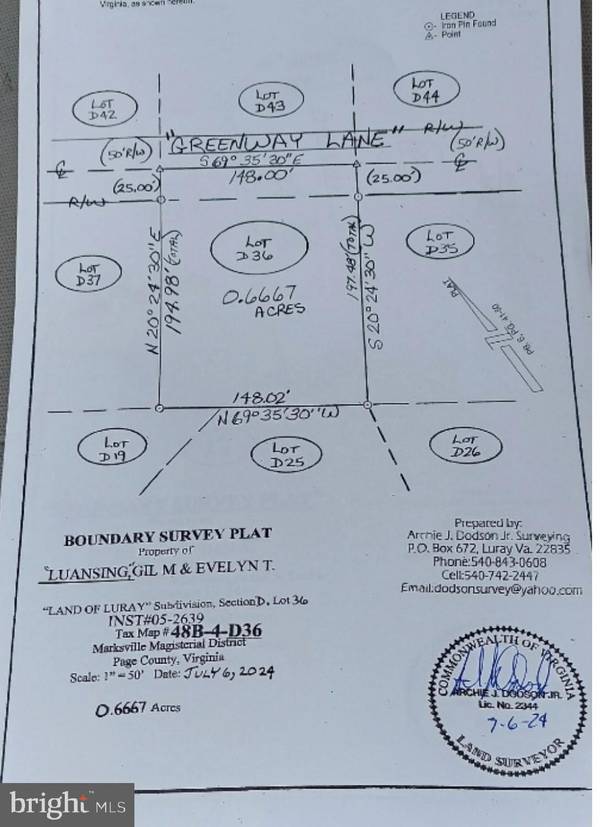 Virginia, as shown herein.
LEGEND
Iron Pin Found
Point
LOT D42
LOT D43
LOT D44
"GREENWAY LANE"
R/W
(50' R/W)
(50' R/W)
S 69° 35' 30" E
148.00'
(25.00')
(25.00')
R/W
LOT D37
N 20° 24' 30" E
194.98' (TOTAL)
LOT D36
0.6667
ACRES
197.48' (TOTAL)
S 20° 24' 30" W
LOT D35
PLAT
PB. 6, PG. 41-50
148.02'
N 69° 35' 30" W
LOT D19
LOT D25
LOT D26
BOUNDARY SURVEY PLAT
Property of
LUANSING, GIL M & EVELYN T.
"LAND OF LURAY" Subdivision, Section D, Lot 36
INST#05-2639
Tax Map # 48B-4-D36
Marksville Magisterial District
Page County, Virginia
Scale: 1" = 50' Date: JULY 6, 2024
0.6667 Acres
Prepared by:
Archie J. Dodson Jr. Surveying
P.O. Box 672, Luray Va. 22835
Phone:540-843-0608
Cell:540-742-2447
Email:dodsonsurvey@yahoo.com
COMMONWEALTH OF VIRGINIA
ARCHIE J. DODSON JR.
Lic. No. 2344
7-6-24
LAND SURVEYOR
bright MLS